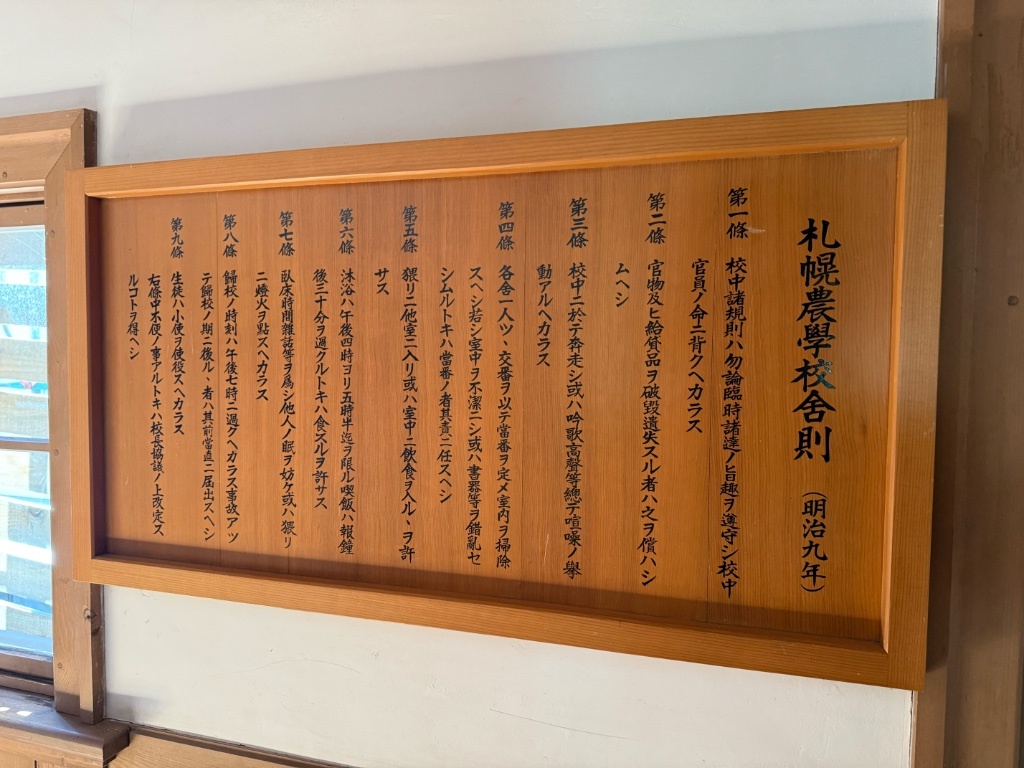 札幌農學校舍則 (明治九年)
第一條 校中諸規則ハ勿論臨時諸達ノ旨趣ヲ遵守シ校中
官員ノ命ニ背クヘカラス
第二條 官物及ヒ給貸品ヲ破毀遺失スル者ハ之ヲ償ハシ
ムヘシ
第三條 校中ニ於テ奔走シ或ハ吟歌高聲等總テ喧噪ノ擧
動アルヘカラス
第四條 各舍一人ツヽ交番ヲ以テ當番ヲ定メ室内ヲ掃除
スヘシ若シ室中ヲ不潔ニシ或ハ書器等ヲ錯亂セ
シムルトキハ當番ノ者其責ニ任スヘシ
第五條 猥リニ他室ニ入リ或ハ室中ニ飮食ヲ入ルヽヲ許
サス
第六條 沐浴ハ午後四時ヨリ五時半迄ヲ限ル喫飯ハ報鐘
後三十分ヲ過クルトキハ食スルヲ許サス
第七條 臥床時間雜話等ヲ爲シ他人ノ眠ヲ妨ケ或ハ猥リ
ニ燈火ヲ點スヘカラス
第八條 歸校ノ時刻ハ午後七時ニ過クヘカラス事故アツ
テ歸校ノ期ニ後ルヽ者ハ其前當直ニ届出スヘシ
第九條 生徒ハ小使ヲ使役スヘカラス
右條中不便ノ事アルトキハ校長協議ノ上改定ス
ルコトヲ得ヘシ